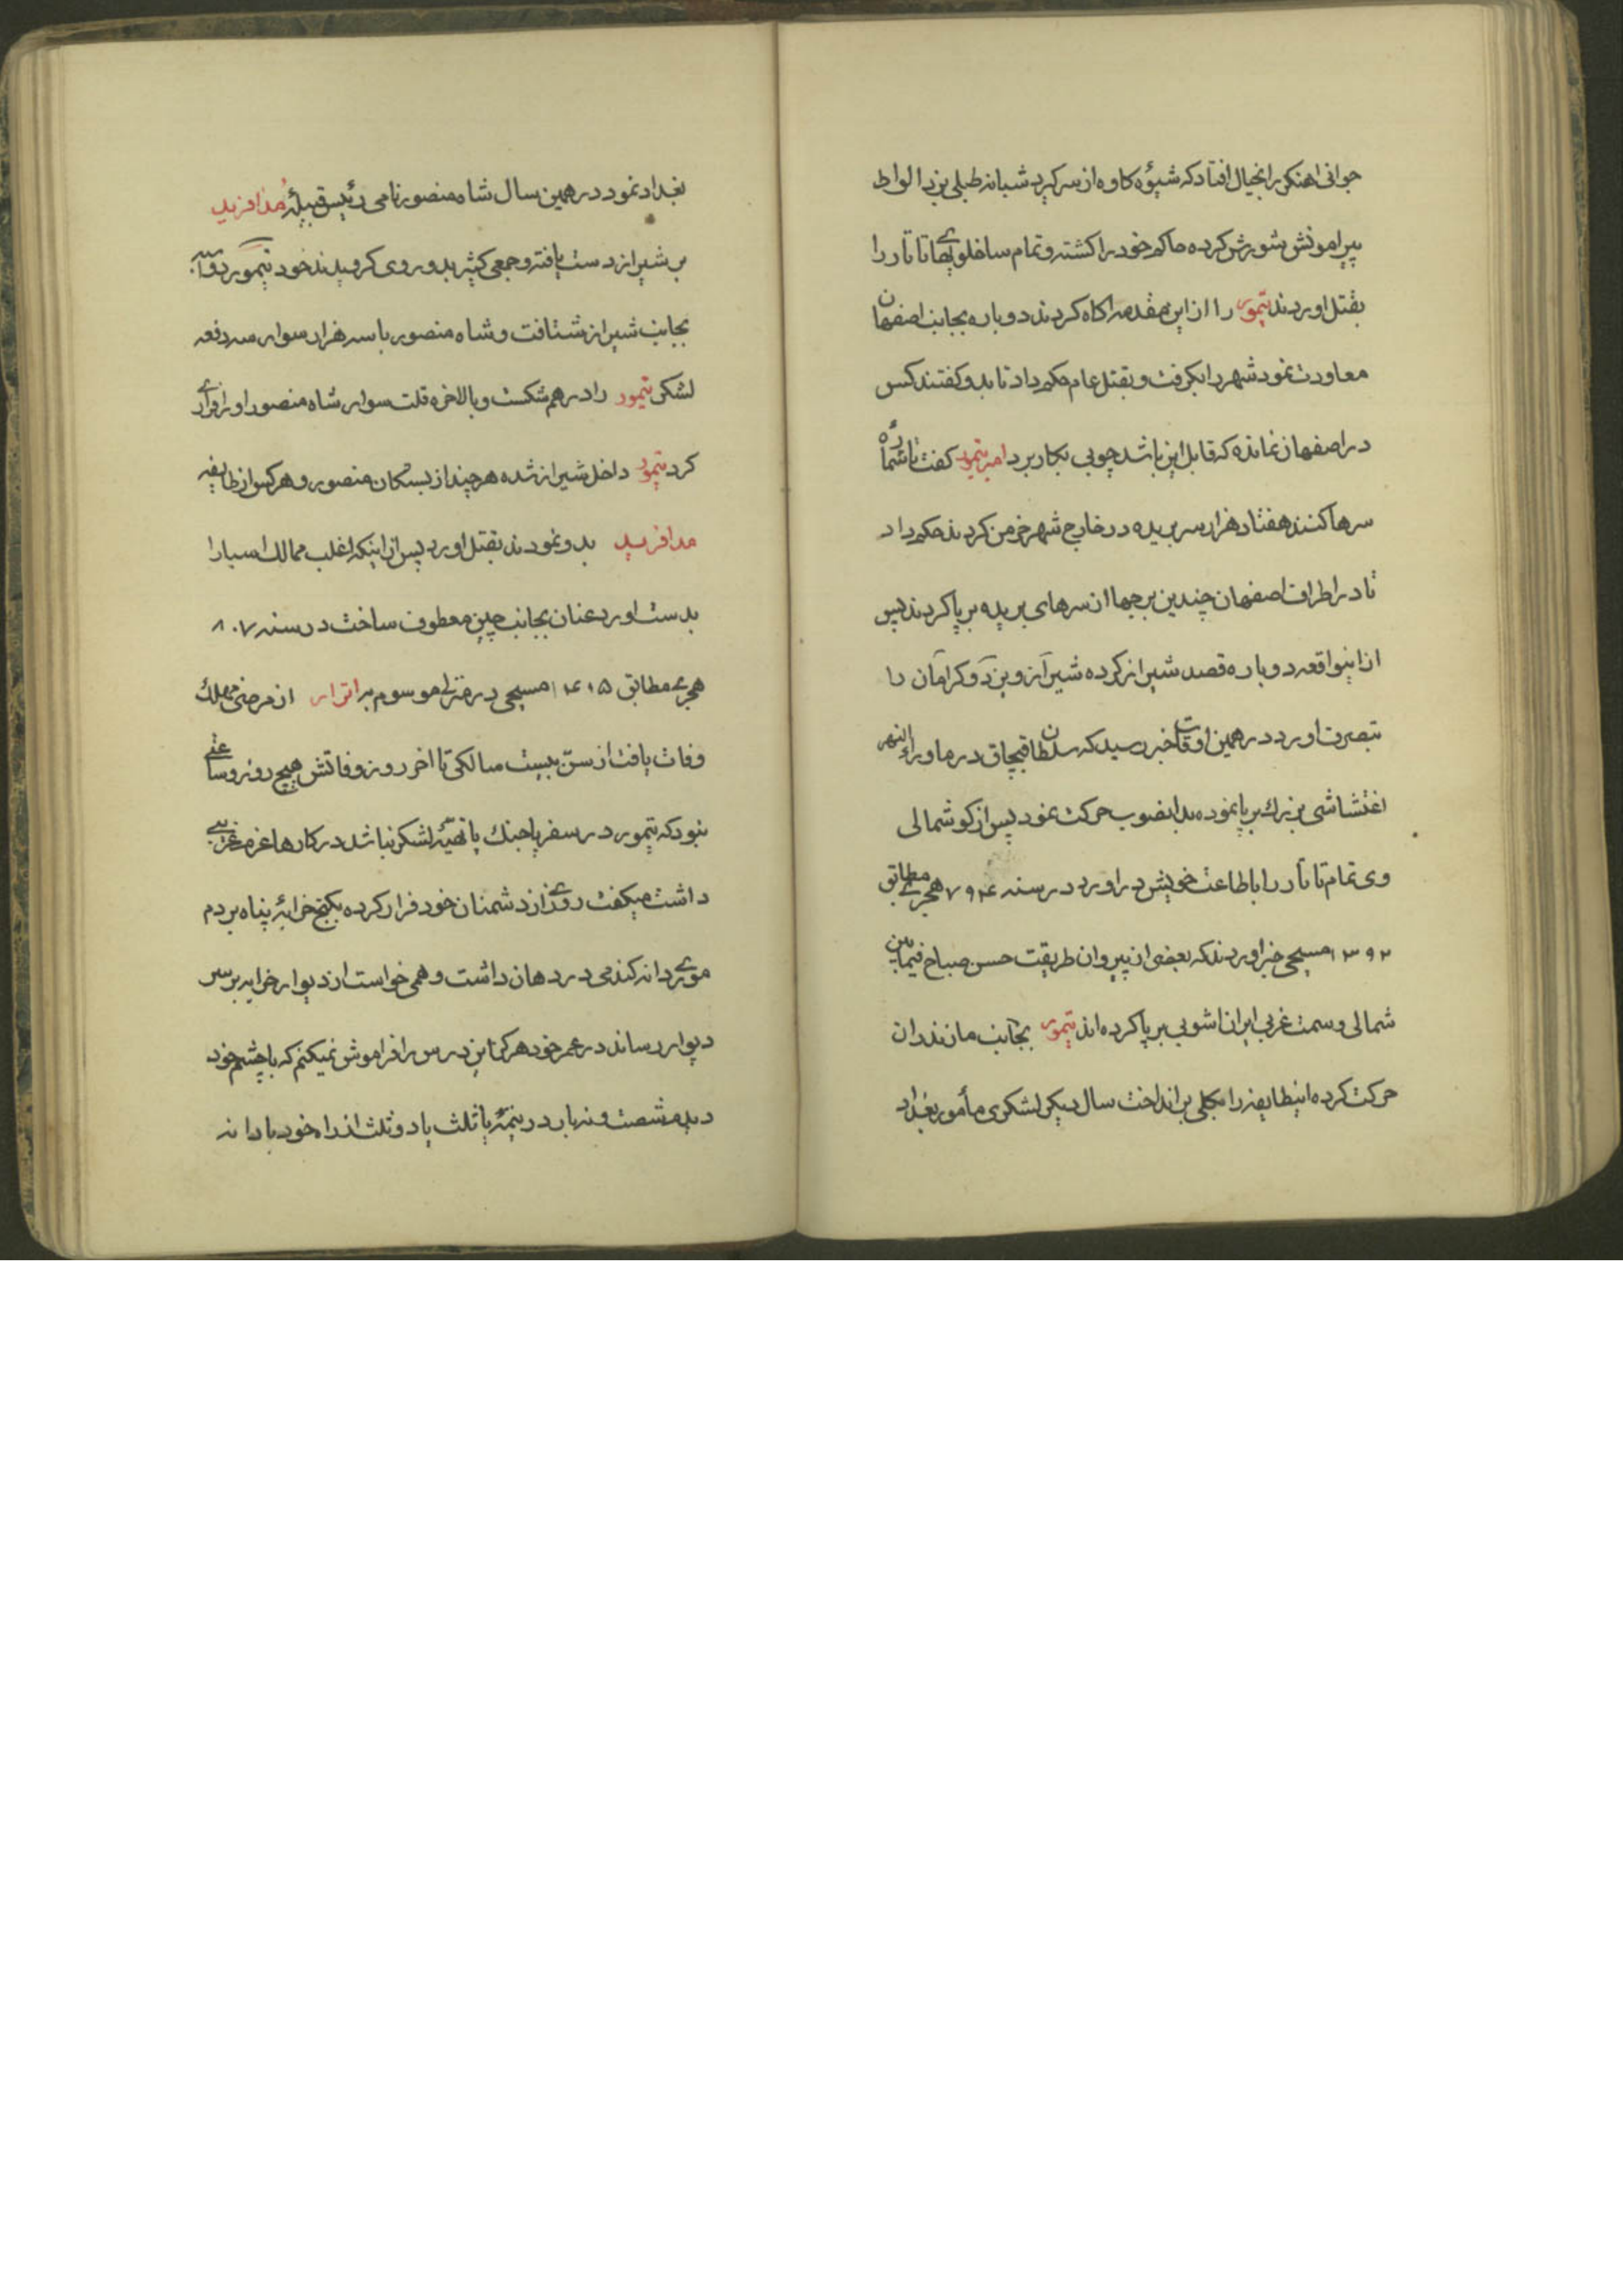 جوانی اهنکر را بخیال افتاد که شیوهٔ کاوه از سر کیرد شبانه طبلی بزد الواط
پیرامونش شورش کرده حاکم خود را کشته و تمام ساخلویهای تاتار را
بقتل اوردند تیمور را از این مقدمه اکاه کردند دوباره بجانب اصفهان
معاودت نمود شهر را بکرفت و بقتل عام حکم داد تا بدو کفتند کس
در اصفهان نمانده که قابل این باشد چوبی بکار برد امیر تیمور کفت تا شماره
سرها کنند هفتاد هزار سر بریده در خارج شهر خرمن کردند حکم داد
تا در اطراف اصفهان چندین برجها از سرهای بریده بر پا کردند پس
از اینواقعه دوباره قصد شیراز کرده شیراز و یزد و کرمان را
بتصرف اورد در همین اوقات خبر رسید که سلطان قبچاق در ماوراء النهر
اغتشاشی بزرك بر پا نموده بدانصوب حرکت نمود پس از کوشمالی
وی تمام تاتار را باطاعت خویش در اورد در سنه ۷۹۴ هجری مطابق
۱۳۹۲ مسیحی خبر اوردند که بعضی از پیروان طریقت حسن صباح فیمابین
شمالی و سمت غربی ایران اشوبی بر پا کرده اند تیمور بجانب مازندران
حرکت کرده اینطایفه را بکلی بر انداخت سال دیکر لشکری مأمور بغداد
بغداد نمود در همین سال شاه منصور نامی رئیس قبیلهٔ مدافرید
بر شیراز دست یافته و جمعی کثیر بدو روی کرویدند خود تیمور
بجانب شیراز شتافت و شاه منصور با سه هزار سوار سه دفعه
لشکر تیمور را در هم شکست و بالاخره قلت سوار شاه منصور او را
کرد تیمور داخل شیراز شده هر چند از بستکان منصور و هر کس از طایفه
مدافرید بدو نمودند بقتل اورد پس از اینکه اغلب ممالك اسیا را
بدست اورد عنان بجانب چین معطوف ساخت در سنه ۸۰۷
هجری مطابق ۱۴۰۵ مسیحی در منزلی موسوم به اترار از مرضی مهلك
وفات یافت از سنّ بیست سالکی تا اخر روز وفاتش هیچ روز و ساعتی
نبود که تیمور در سفر یا جنك یا تهیّهٔ لشکر نباشد در کارها عزم غریبی
داشت میکفت روزی از دشمنان خود فرار کرده بکنج خرابهٔ پناه بردم
موری دانه کندمی در دهان داشت و همی خواست از دیوار خرابه بر سر
دیوار رساند در عمر خود هرکز این درس را فراموش نمیکنم که با چشم خود
دیدم شصت و نه بار در نیمهٔ یا ثلث یا دو ثلث از راه خود با دانه